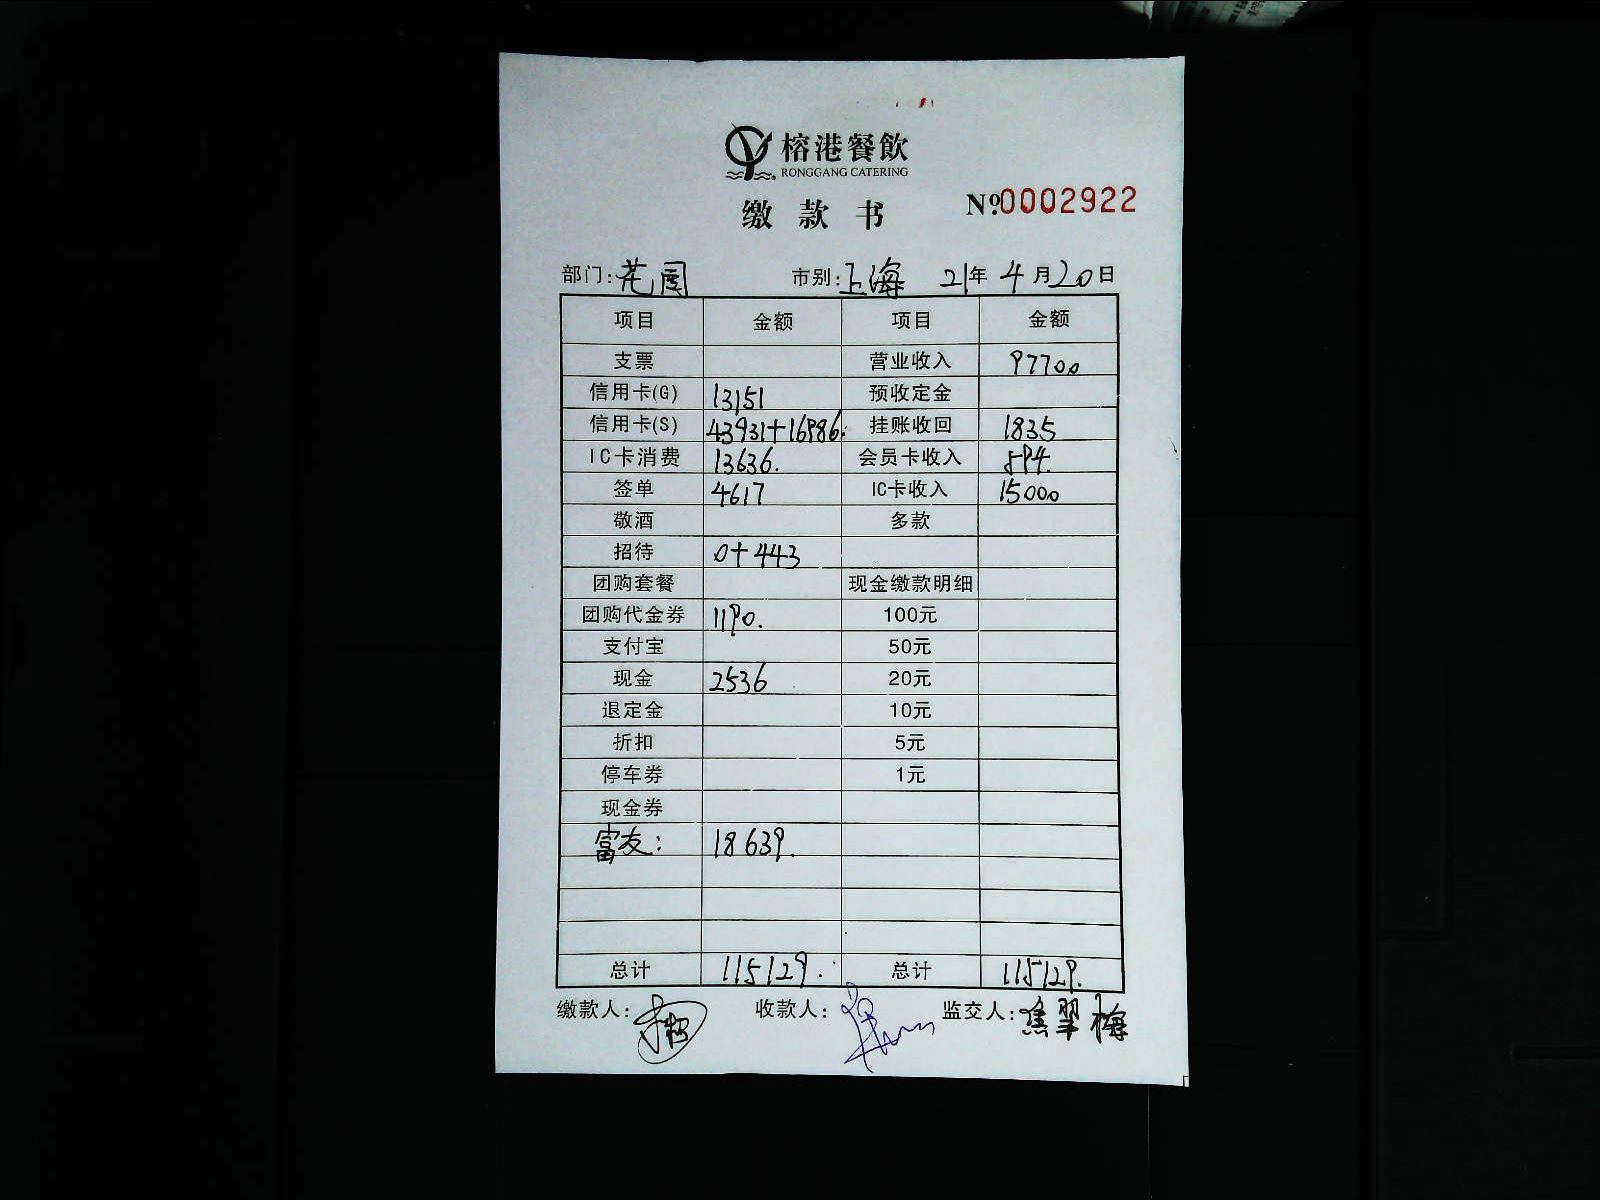 榕港餐飲
RONGGANG CATERING
缴款书 №0002922
部门:花园 市别:上海 21年4月20日
项目 金额 项目 金额
支票 营业收入 97700
信用卡(G) 13151 预收定金
信用卡(S) 43931+16986. 挂账收回 1835
IC卡消费 13636. 会员卡收入 594.
签单 4617 IC卡收入 15000
敬酒 多款
招待 0+443
团购套餐 现金缴款明细
团购代金券 1190. 100元
支付宝 50元
现金 2536 20元
退定金 10元
折扣 5元
停车券 1元
现金券
富友: 18639.
总计 115129. 总计 115129.
缴款人: 收款人: 监交人:焦翠梅